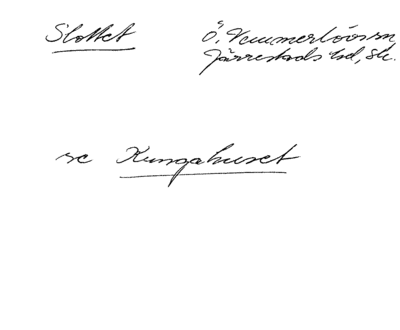 Slottet
Ö. Vemmerlövs sn
Järrestads hd, Sk.
se Kungahuset